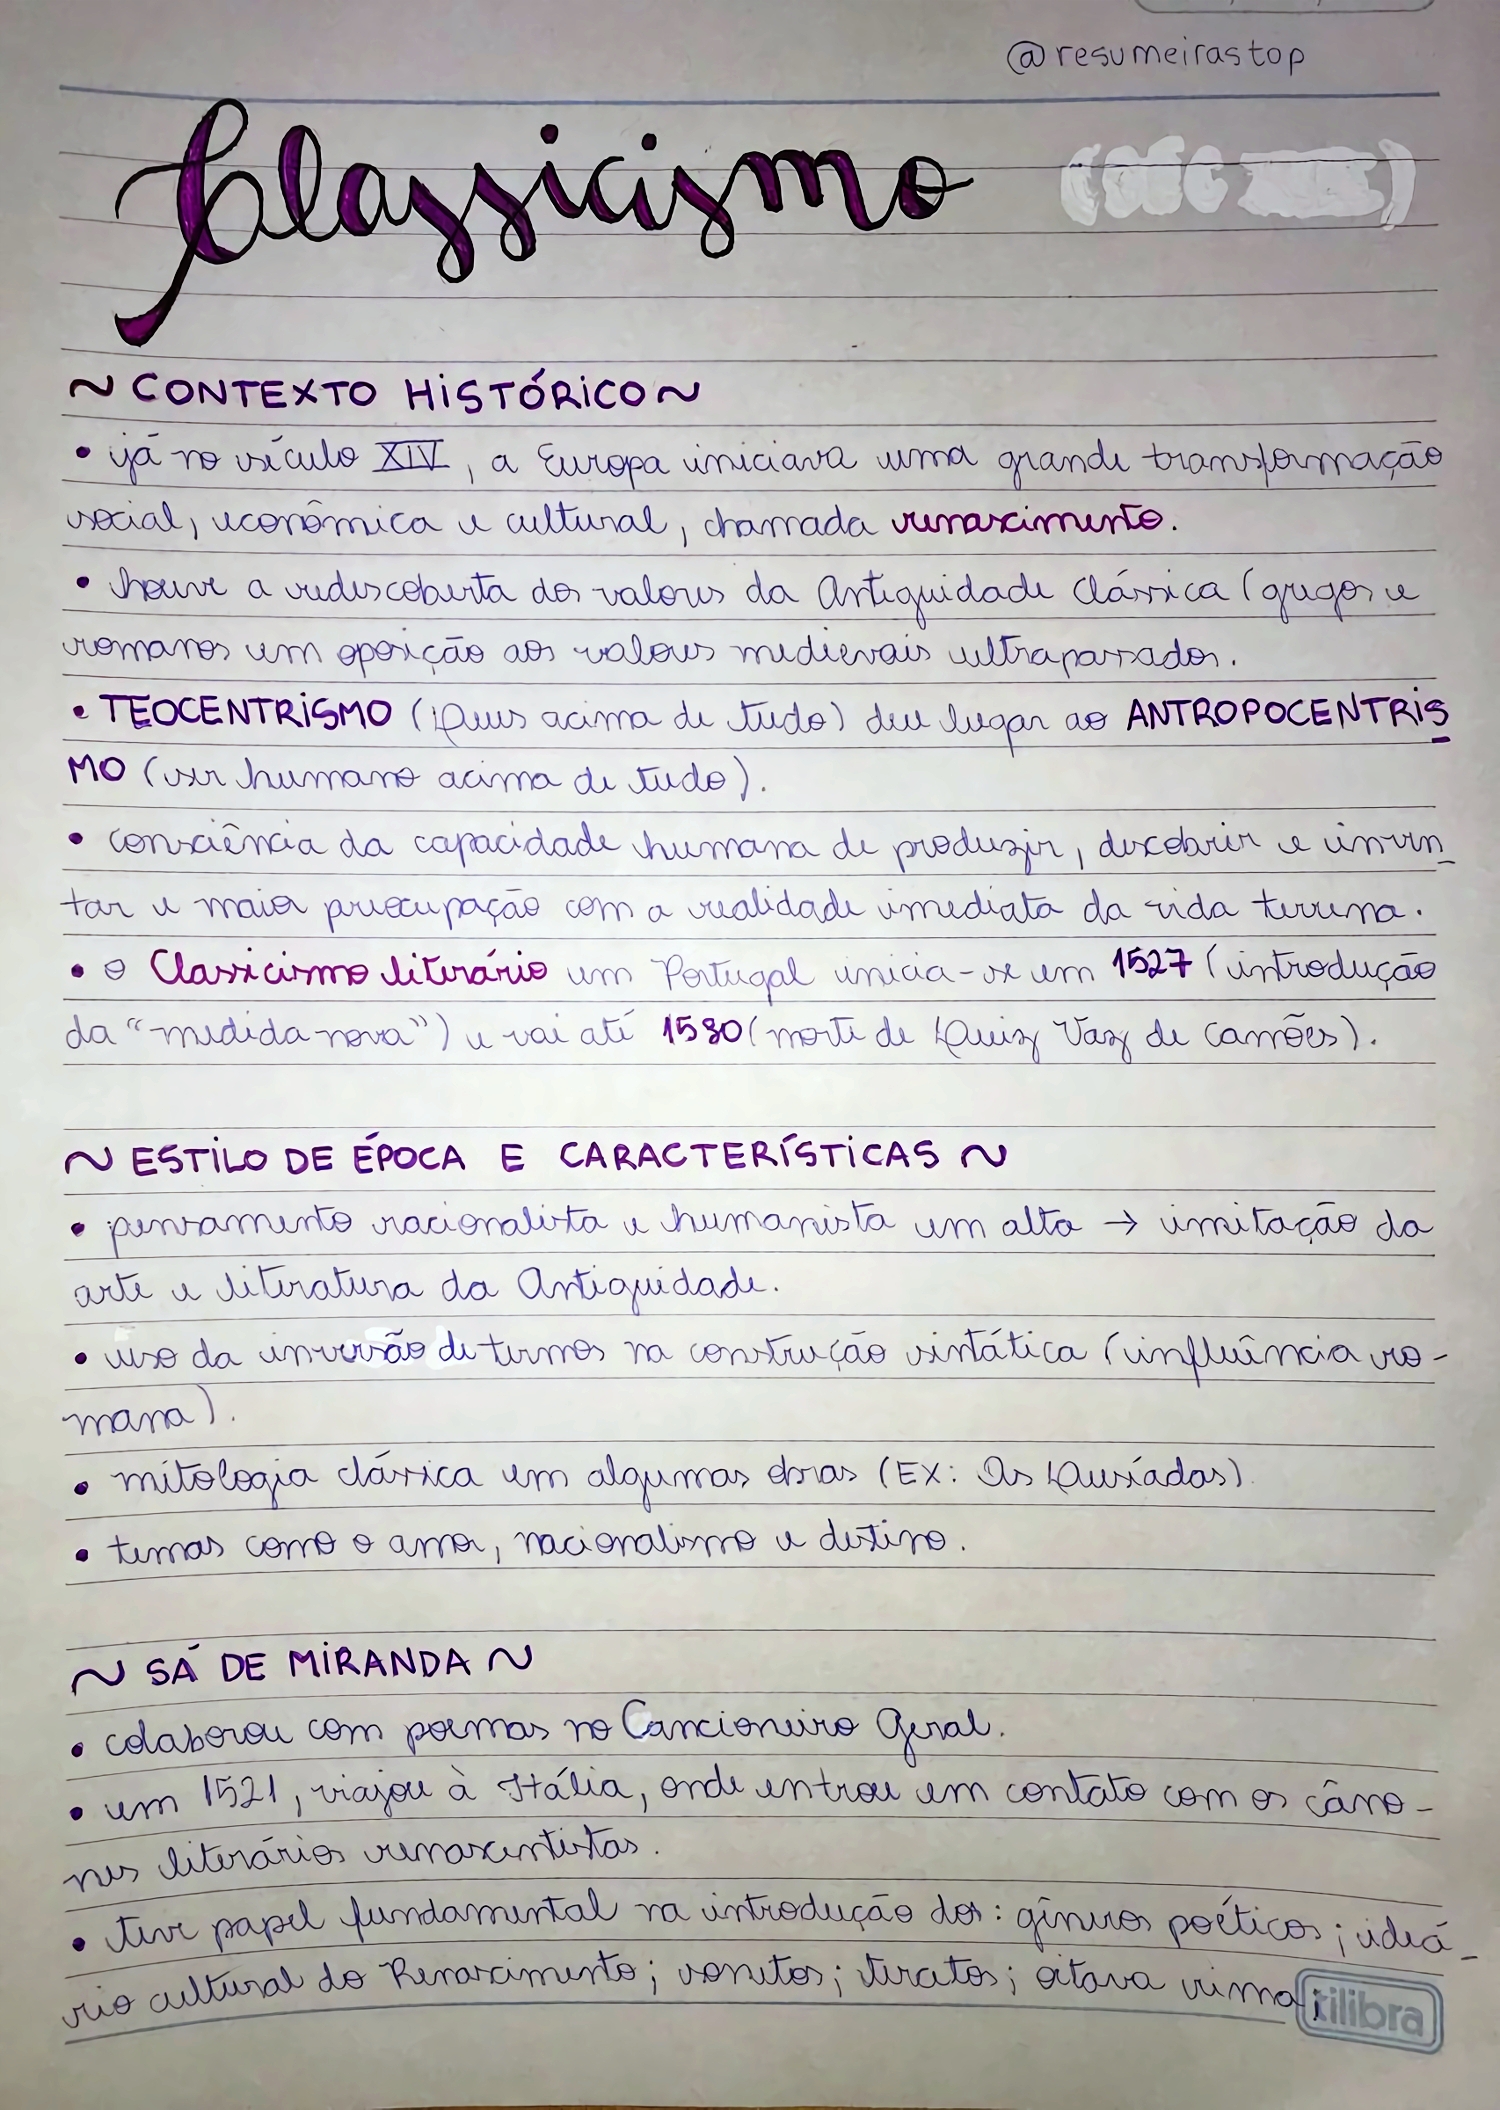 @resumeirastop
Classicismo
~ CONTEXTO HISTÓRICO ~
• já no século XIV, a Europa iniciava uma grande transformação
social, econômica e cultural, chamada renascimento.
• houve a redescoberta dos valores da Antiguidade Clássica (gregos e
romanos em oposição aos valores medievais ultrapassados.
• TEOCENTRISMO (Deus acima de tudo) deu lugar ao ANTROPOCENTRIS
MO (ser humano acima de tudo).
• consciência da capacidade humana de produzir, descobrir e inven_
tar e maior preocupação com a realidade imediata da vida terrena.
• o Classicismo literário em Portugal inicia-se em 1527 (introdução
da "medida nova") e vai até 1580 (morte de Luiz Vaz de Camões).
~ ESTILO DE ÉPOCA E CARACTERÍSTICAS ~
• pensamento racionalista e humanista em alta → imitação da
arte e literatura da Antiguidade.
• uso da inversão de termos na construção sintática (influência ro-
mana).
• mitologia clássica em algumas obras (EX: Os Lusíadas).
• temas como o amor, nacionalismo e destino.
~ SÁ DE MIRANDA ~
• colaborou com poemas no Cancioneiro Geral.
• em 1521, viajou à Itália, onde entrou em contato com os câno-
nes literários renascentistas.
• teve papel fundamental na introdução dos: gêneros poéticos; ideá_
rio cultural do Renascimento; sonetos; tercetos; oitava rima;
tilibra